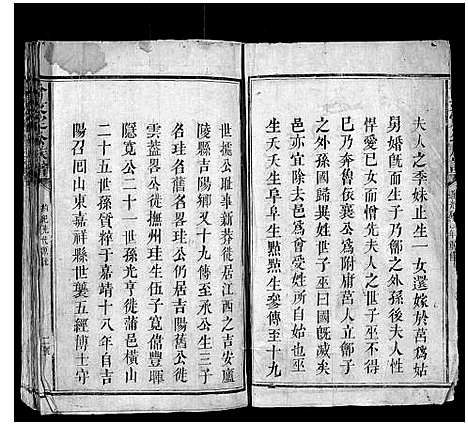 夫人之季妹止生一女還嫁於莒爲姑
舅婚旣而生子乃鄫之外孫後夫人性
悍愛已甚前先夫人之世子巫不得
已乃奔魯依襄公爲附庸莒人立鄫子
之外孫國歸異姓世子巫曰國旣滅矣
邑亦宜除去邑爲曾受姓所自始也巫
生夭夭生阜阜生點點生參傳至十九
世據公恥事新莽徙居江西之吉安廬
陵縣吉陽鄉又十九傳至丞公生三子
名珪名舊名畧珪公仍居吉陽舊公徙
雲蓋畧公徙撫州珪生伍子寬儒豐畢
隱寬公二十一世孫光亨徙蒲邑橫山
二十五世孫質粹于嘉靖十八年自吉
陽召囘山東嘉祥縣世襲五經博士守